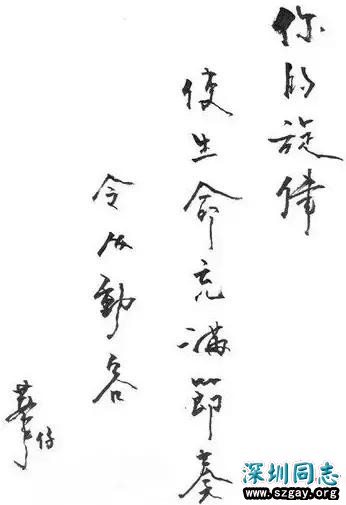 你的旋律
使生命充滿節奏
令人動容
華仔
深圳同志
www.szgay.org